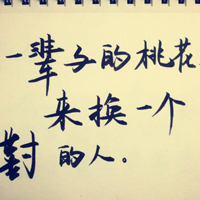 一辈子的桃花
来换一个
對的人。